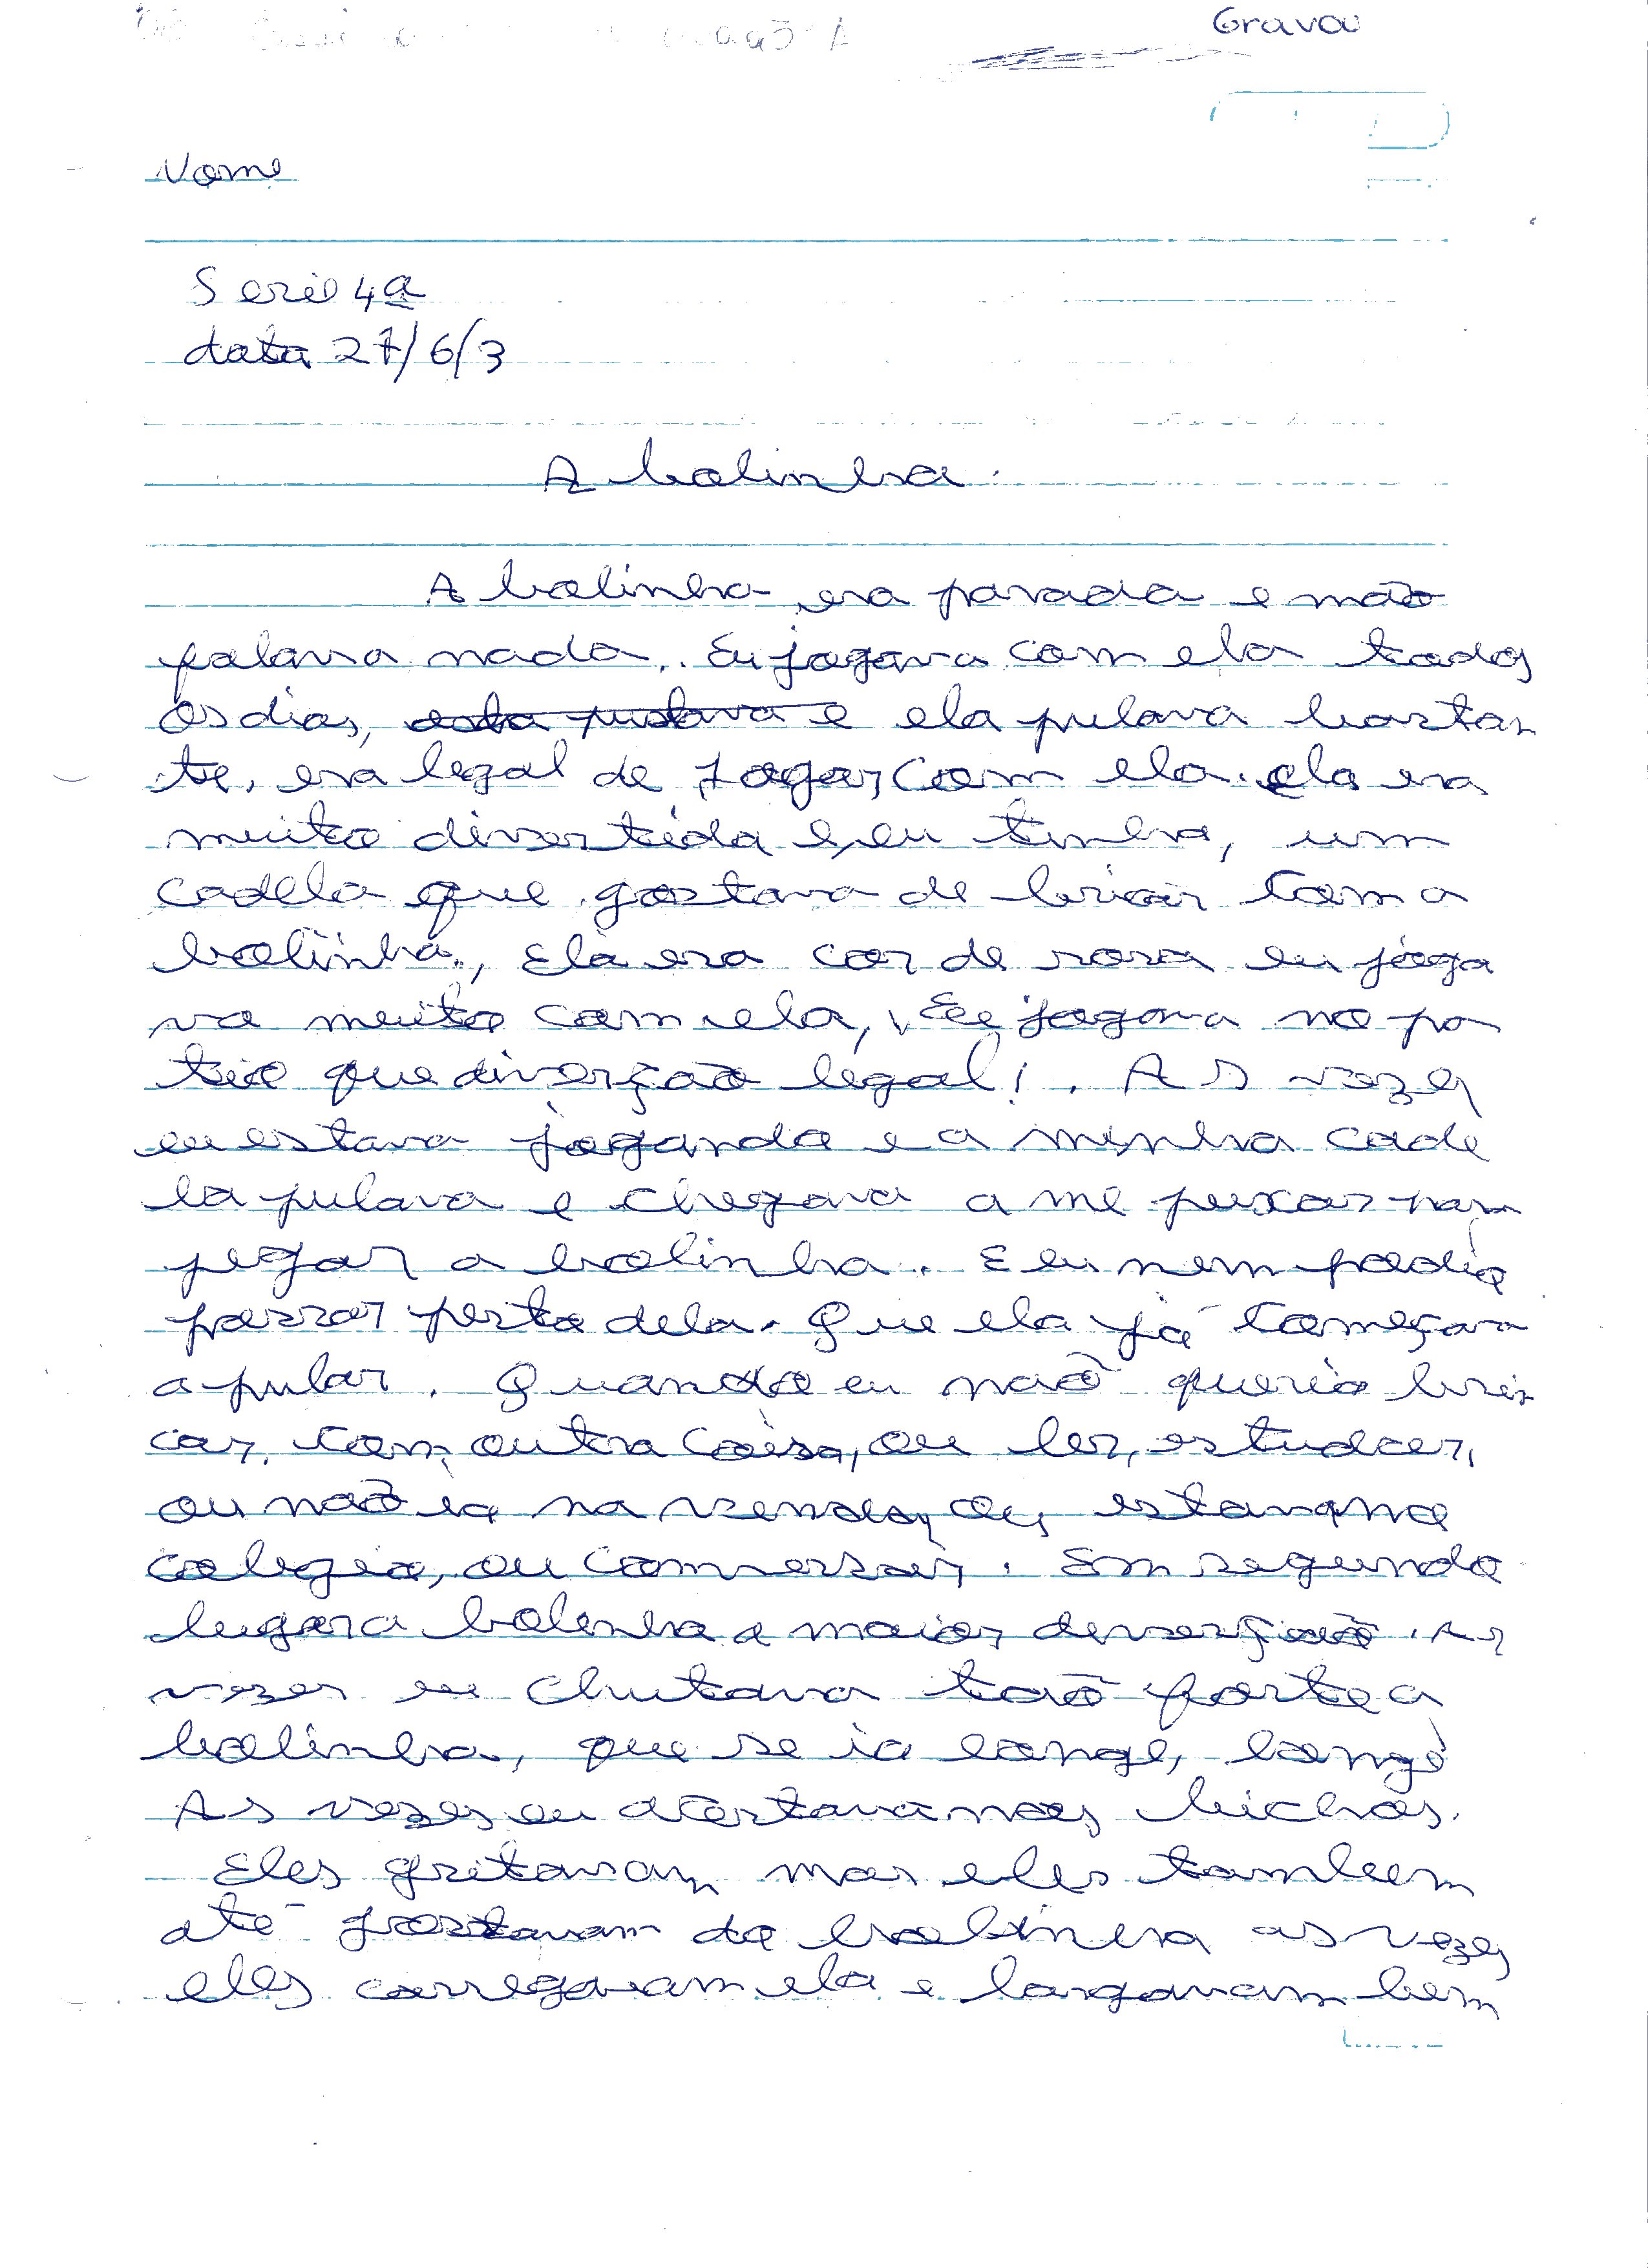 Grava
Nome
Serie 4a
data 27/6/3
A bolinha.
A bolinha era parada e não
falava nada. Eu jogava com ela todos
os dias, e ela pulava bastan
te, era legal de jogar com ela. ela era
muito divertida e, eu tinha, um
cadela que gostava de bricar com a
bolinha, Ela era cor de rosa eu joga
va muito com ela, Eu jogava no pa
tio que diverção legal! . As vezes
eu estava jogando e a minha cade
la pulava e chegava a me puxar para
pegar a bolinha. E eu nem podia
passar perto dela. Que ela já começava
a pular. Quando eu não queria brin
car, com outra coisa, ou ler, estudar,
ou não ia na venda, ou, estar no
colegio, ou conversar. Em segundo
lugar a bolinha a maior diversão. As
vezes eu chutava tão forte a
bolinha, que se ia longe, longe
As vezes eu acertava nos bichos.
Eles gritavam mas eles tambem
até gostavam da bolinha as vezes
eles carregavam ela e largavam bem